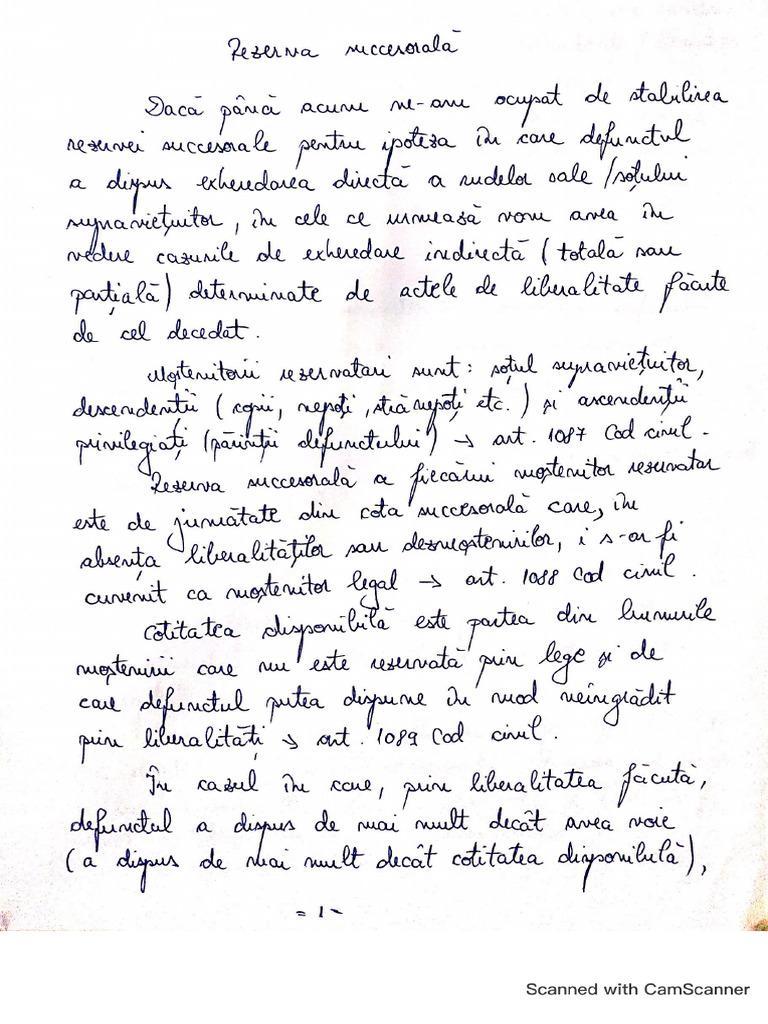 Rezerva succesorală
Dacă până acum ne-am ocupat de stabilirea
rezervei succesorale pentru ipoteza în care defunctul
a dispus exheredarea directă a rudelor sale /soțului
supraviețuitor, în cele ce urmează vom avea în
vedere cazurile de exheredare indirectă (totală sau
parțială) determinate de actele de liberalitate făcute
de cel decedat.
Moștenitorii rezervatari sunt: soțul supraviețuitor,
descendenții (copii, nepoți, strănepoți etc.) și ascendenții
privilegiați (părinții defunctului) → art. 1087 Cod civil.
Rezerva succesorală a fiecărui moștenitor rezervatar
este de jumătate din cota succesorală care, în
absența liberalităților sau dezmoștenirilor, i s-ar fi
cuvenit ca moștenitor legal → art. 1088 Cod civil.
Cotitatea disponibilă este partea din bunurile
moștenirii care nu este rezervată prin lege și de
care defunctul putea dispune în mod neîngrădit
prin liberalități → art. 1089 Cod civil.
În cazul în care, prin liberalitatea făcută,
defunctul a dispus de mai mult decât avea voie
(a dispus de mai mult decât cotitatea disponibilă),
- 1 -
Scanned with CamScanner